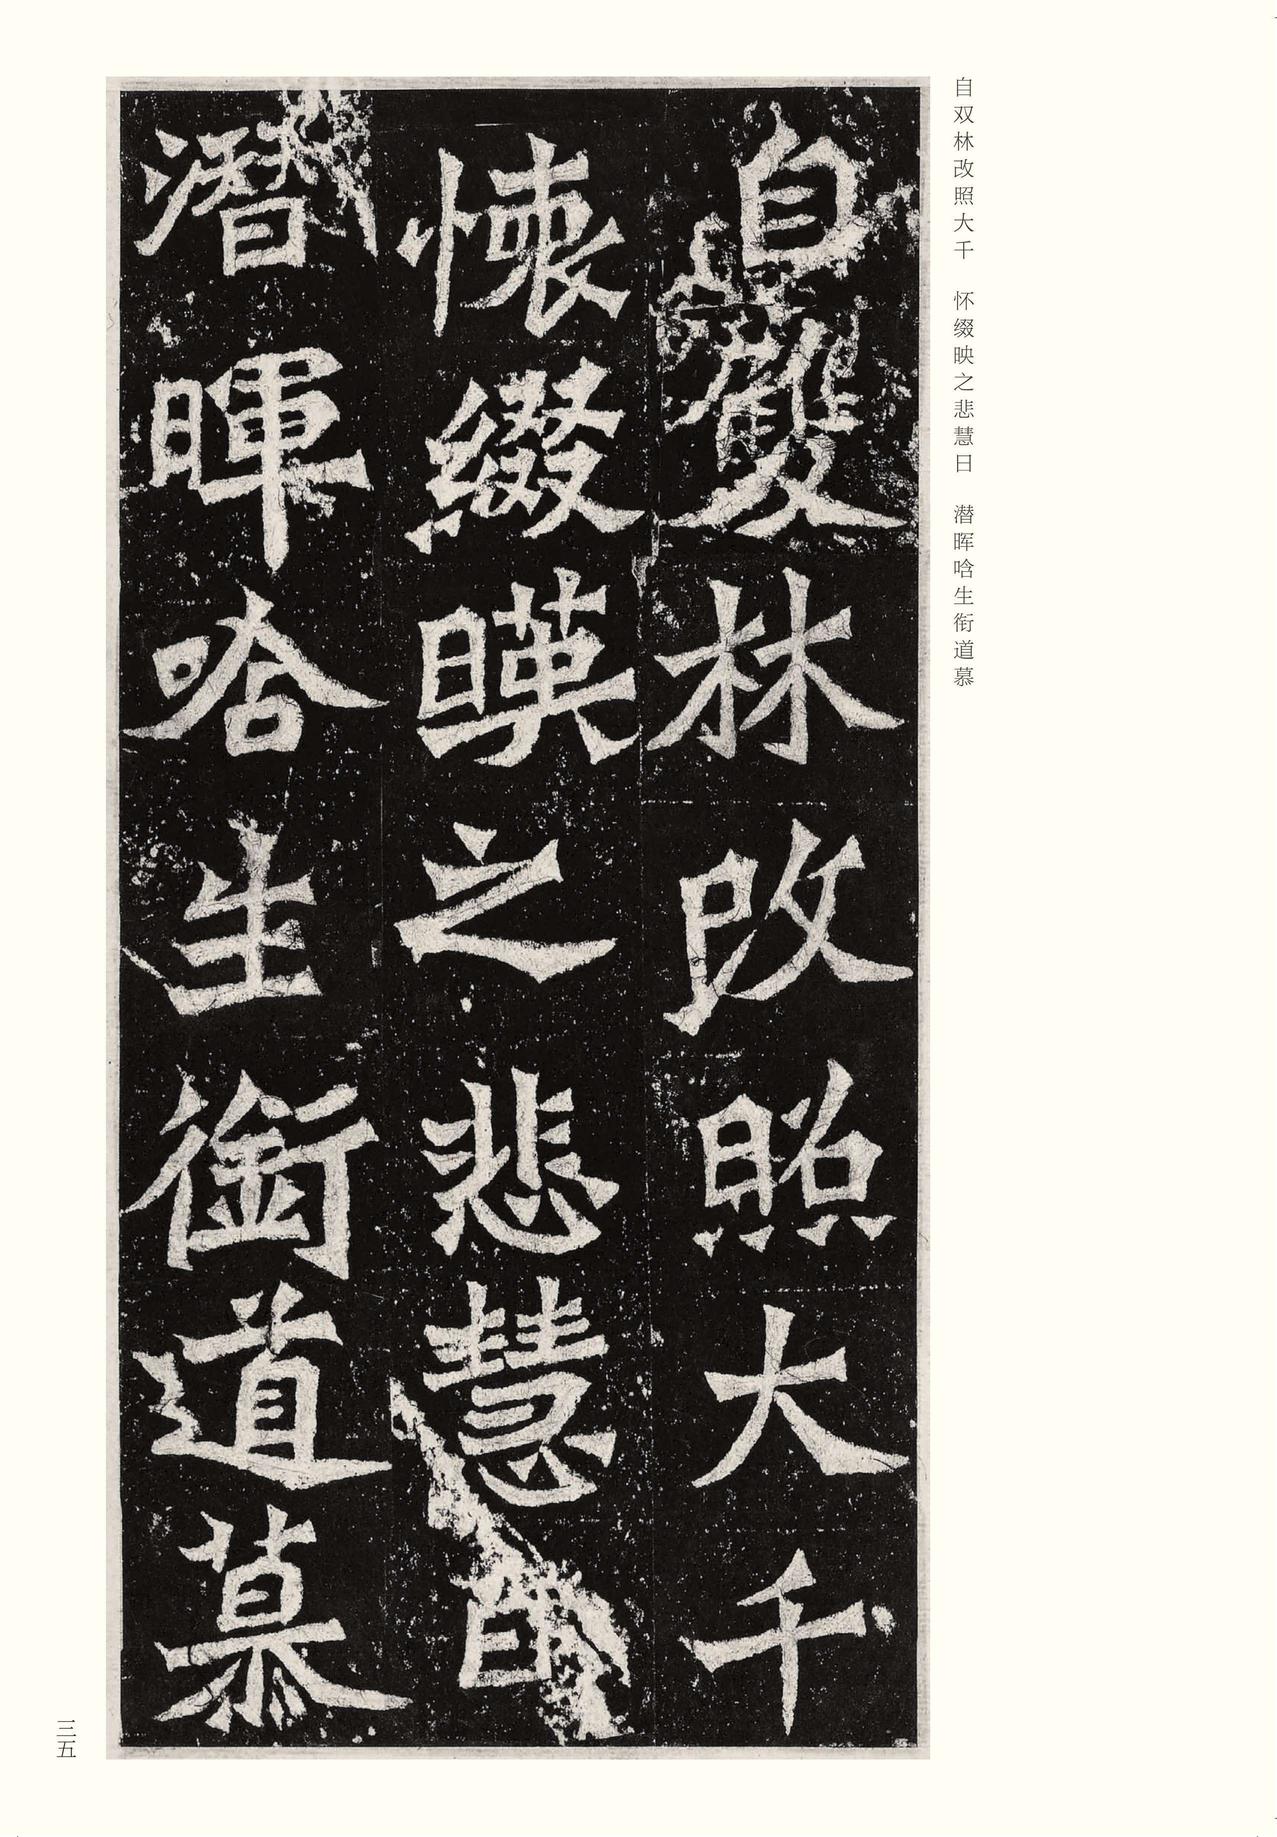 自双林改照大千　怀缀映之悲慧日　潜晖唅生衔道慕
自雙林改照大千
懐綴暎之悲慧日
潛暉唅生衘道慕
三五